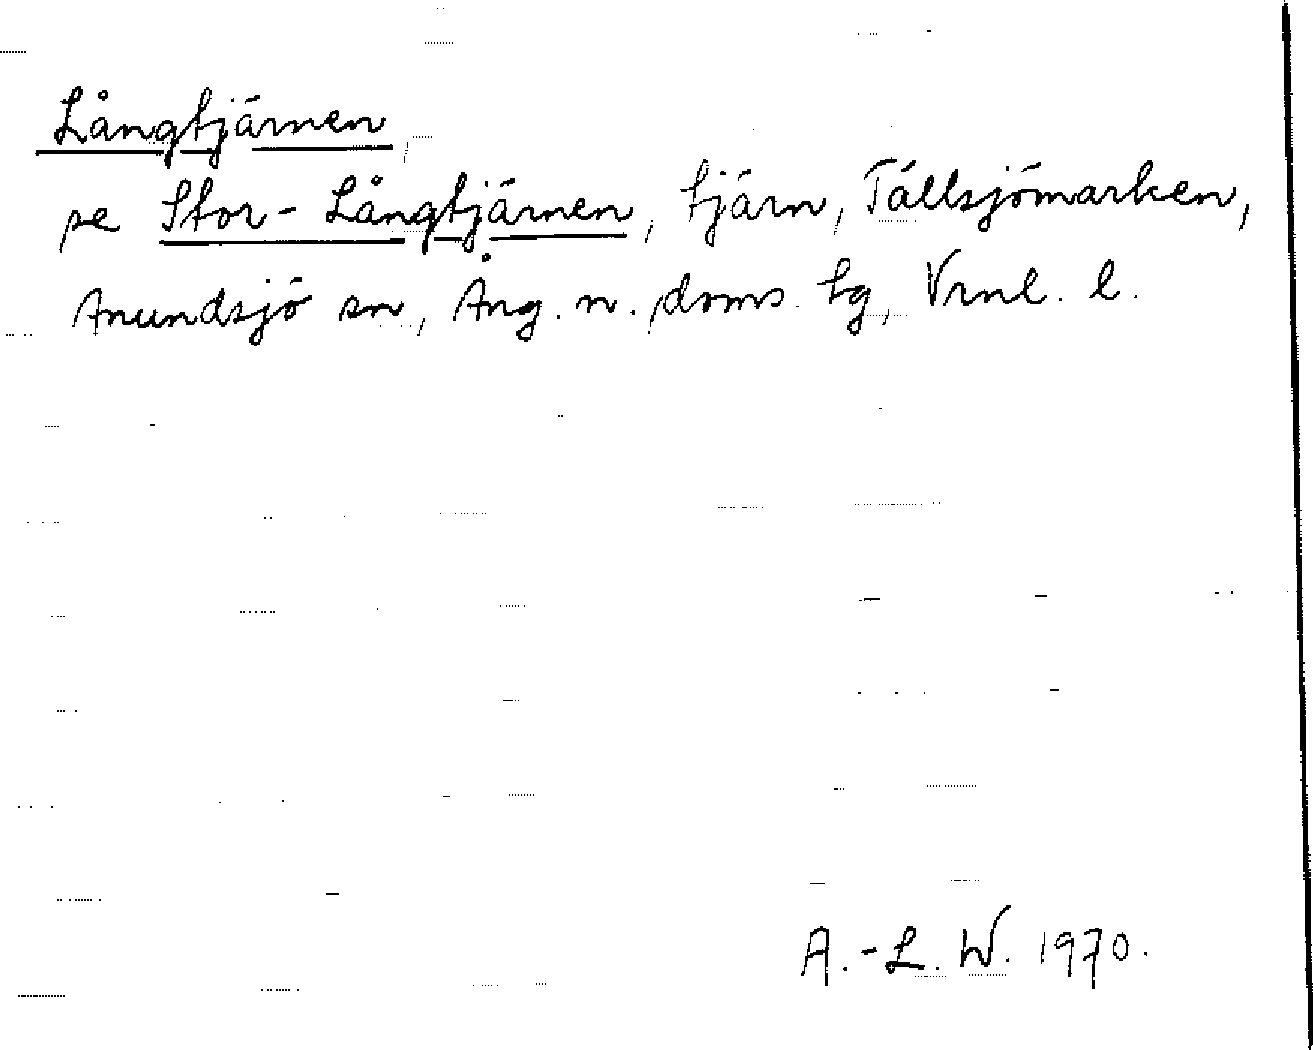 Långtjärnen
se Stor-Långtjärnen, tjärn, Tällsjömarken,
Anundsjö sn, Ång. n. doms. tg, Vrnl. l.
A.-L. W. 1970.